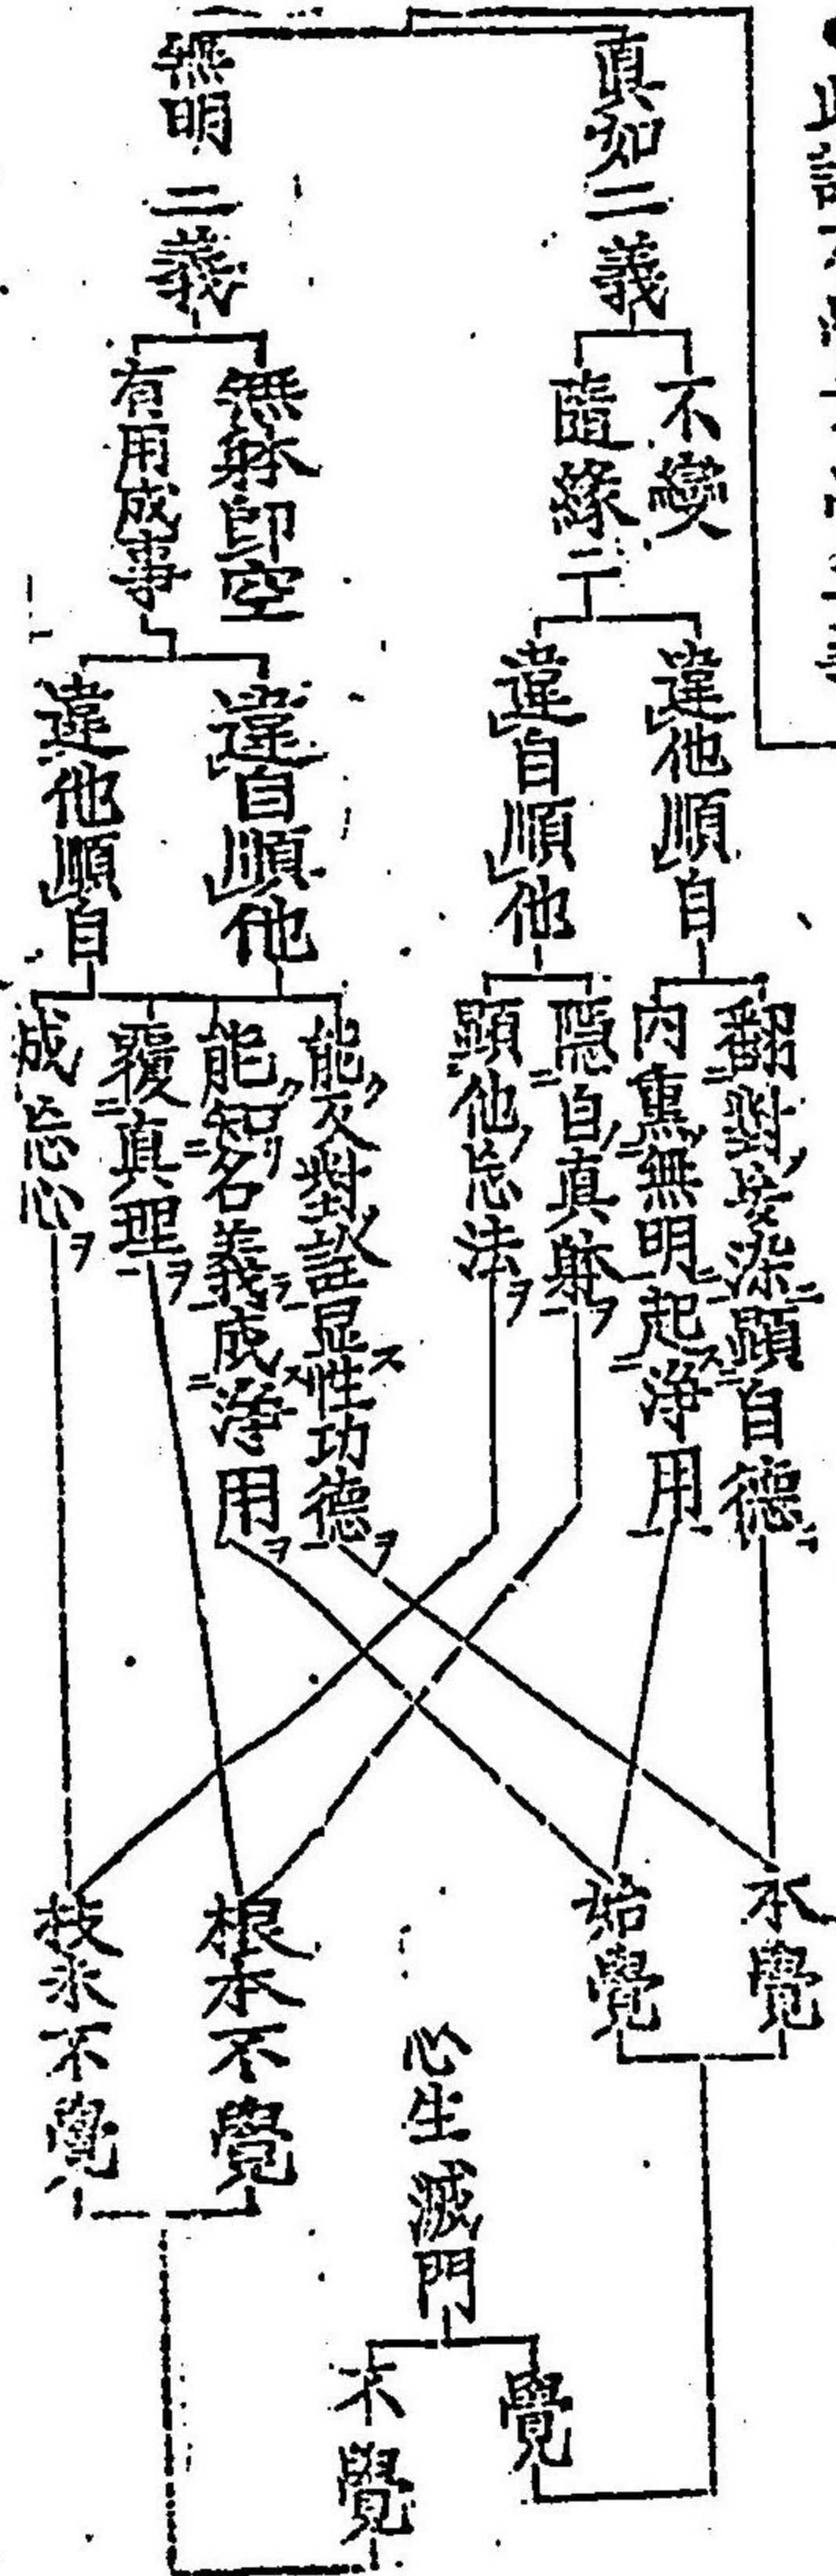 真如二義
不變
隨緣二
違他順自
違自順他
翻對妄染顯自德
内熏無明起淨用
隱自真躰ヲ
顯他忘法ヲ
無明二義
無躰即空
有用成事
違自順他
違他順自
能ク反對詮显性功德ヲ
能知名義成淨用ヲ
覆真理ヲ
成忘心ヲ
本覺
始覺
根本不覺
枝末不覺
心生滅門
覺
不覺